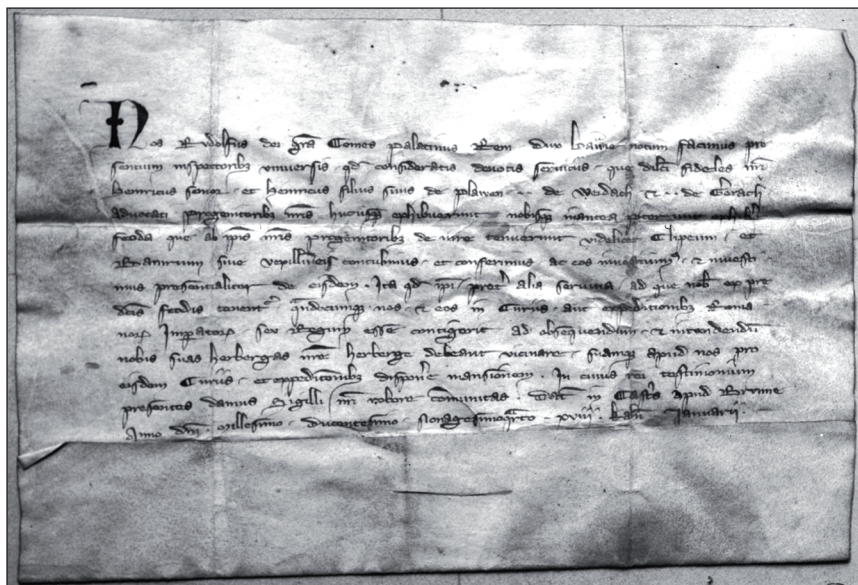 Nos Rudolfus dei gra Comes Palatinus Reni Dux Bawarie notum facimus pre
sentium inspectoribz universis qd consideratis devotis serviciis que dilci fideles nri
Henricus senior et Henricus filius suus de Plawen de Weidach et de Gerach
advocati progenitoribz nris hucusqz exhibuerunt nobisqz inantea
feoda que ab ipsis nris progenitoribz de iure tenuerunt videlicet Clipeum et
Bannum sive contulimus et conferimus ac eos et investi
mus presencialiter de eisdem Ita qd ipi pret alia servicia ad que nob ex pre
dcis feodis tenent qndocumqz nos et eos in Curiis aut expedicionibz Roma
norz Impatorz seu Regum esse contigerit ad obsequendum et intendendum
nobis suas herbergas nre herberge debeant vicinare suamqz apud nos pro
eisdem Curiis et expedicionibz mansionem In cuius rei testimonium
presentes damus Sigilli nri robore communitas Dat in Castris apud
Anno dni Millesimo ducentesimo Nonagesimoqrto xviiii kaln Januarii